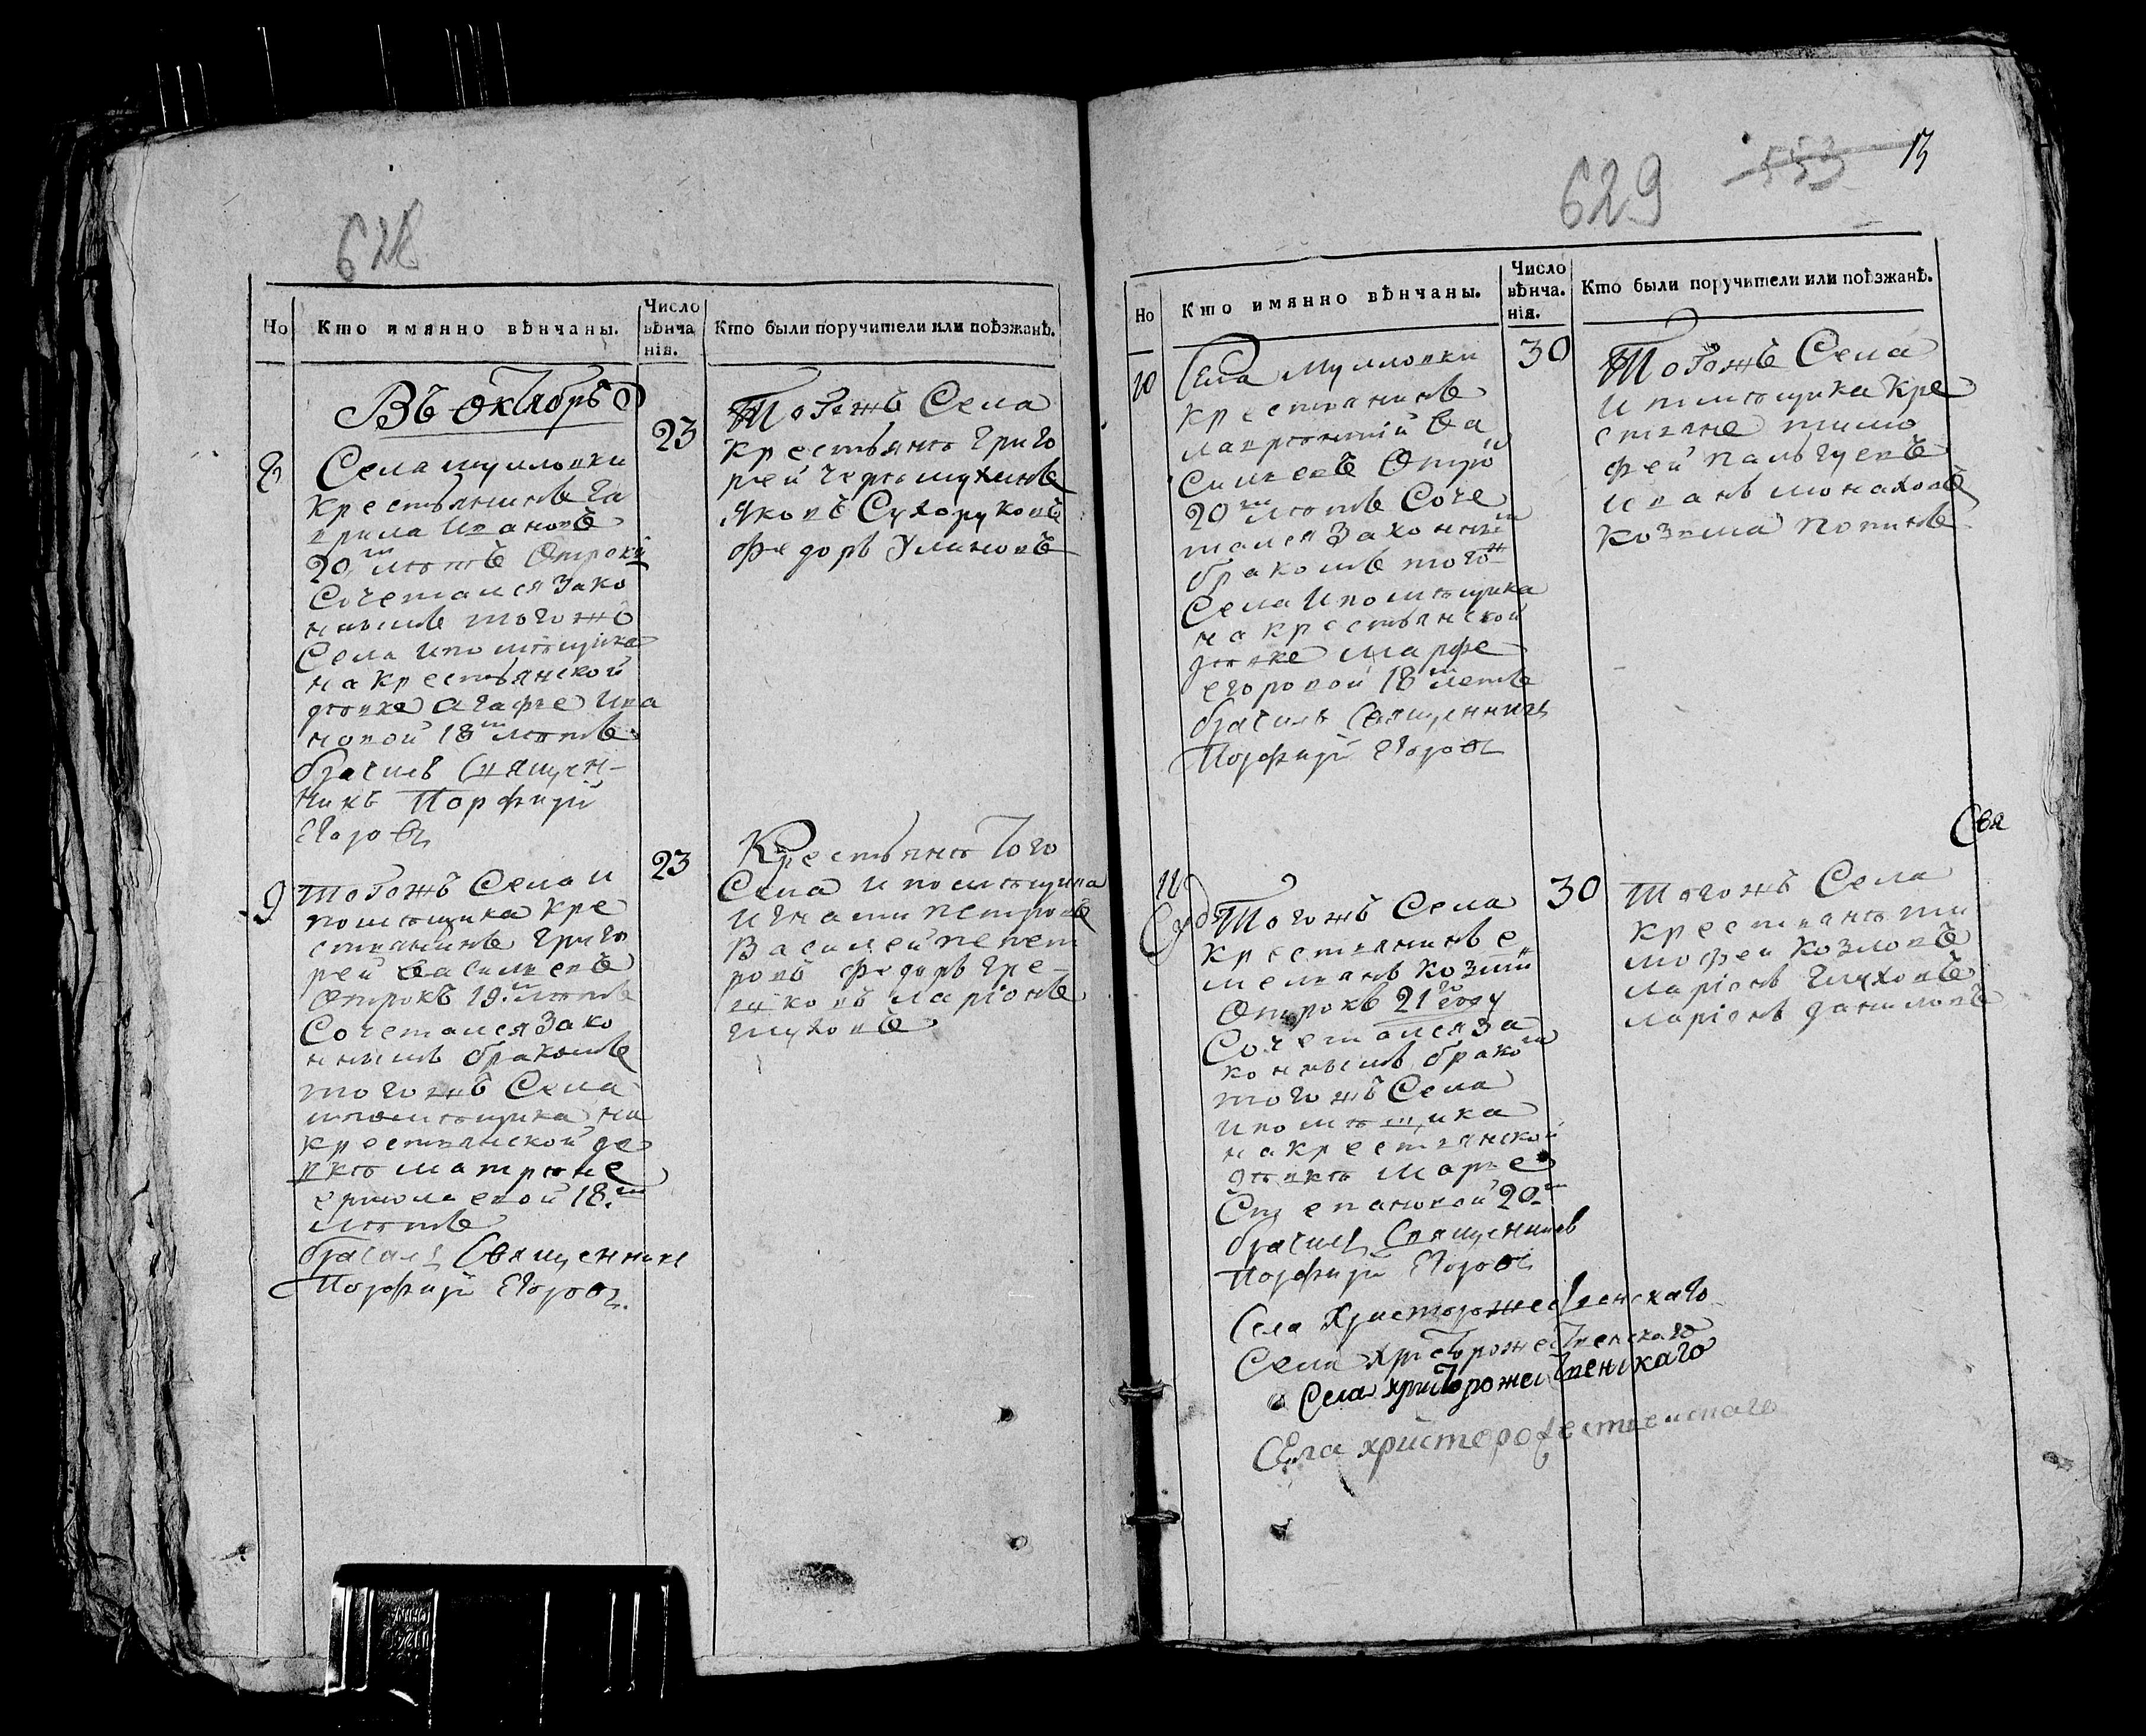 628
Но
Кто имянно вѣнчаны.
Число
вѣнча
нія.
Кто были поручители или поѣзжанѣ.
Въ Октябрѣ
8
Села муловки
крестьянинъ га
врила Ивановъ
20 т лѣтъ Отрокъ
Сочетался зако
ннымъ тогожъ
Села ипомѣщика
на крестьянской
дѣвке агафье Ива
новой 18 т лѣтъ
брачилъ Священ-
никъ Порфирій
Егоровъ
23
Тогожъ Села
крестьянѣ Григо
рей
Яковъ Сухоруковъ
федоръ Улановъ
9
Тогожъ Села и
помѣщика кре
стьянинъ григо
рей васильевъ
Отрокъ 19 т лѣтъ
Сочетался зако
ннымъ бракомъ
тогожъ Села
ипомѣщика на
крестьянской де
вкѣ матрѣне
ермолаевой 18 т
лѣтъ
брачилъ Священникъ
Порфирій Егоровъ.
23
Крестьянѣ Того
Села ипомѣщика
игнати петровъ
Василей
федоръ гре-
ларіонъ
глуховъ
629
553
13
Но
Кто имянно вѣнчаны.
Число
вѣнча.
нія.
Кто были поручители или поѣзжанѣ.
10
Села муловки
крестьянинъ
лаврентий Ва
сильевъ Отро
20 т лѣтъ Соче
тался законны м
бракомъ того ж
Села ипомѣщика
на крестьянской
дѣвке марфе
егоровой 18 т летъ
брачилъ Священникъ
Порфирій Егоровъ
30
Тогожъ Села
ипомѣщика кре
стьяне тимо
фей пальгуевъ
иванъ монаховъ
козма попинъ
Свя
11
Тогожъ Села
крестьянинъ е
мельянъ козмин
Отрокъ 21 го году
Сочетался за
коннымъ брако м
тогожъ Села
ипомѣщика
на крестьянской
дѣвкѣ марье
Степановой 20 т
брачилъ Священникъ
Порфирій Егоровъ
30
Тогожъ Села
крестьянѣ ти
мофей козловъ
ларіонъ глуховъ
ларіонъ даниловъ
Села Христорожественскаго
Села христорожественскаго
Села христорожественскаго
Села христорожественскаго